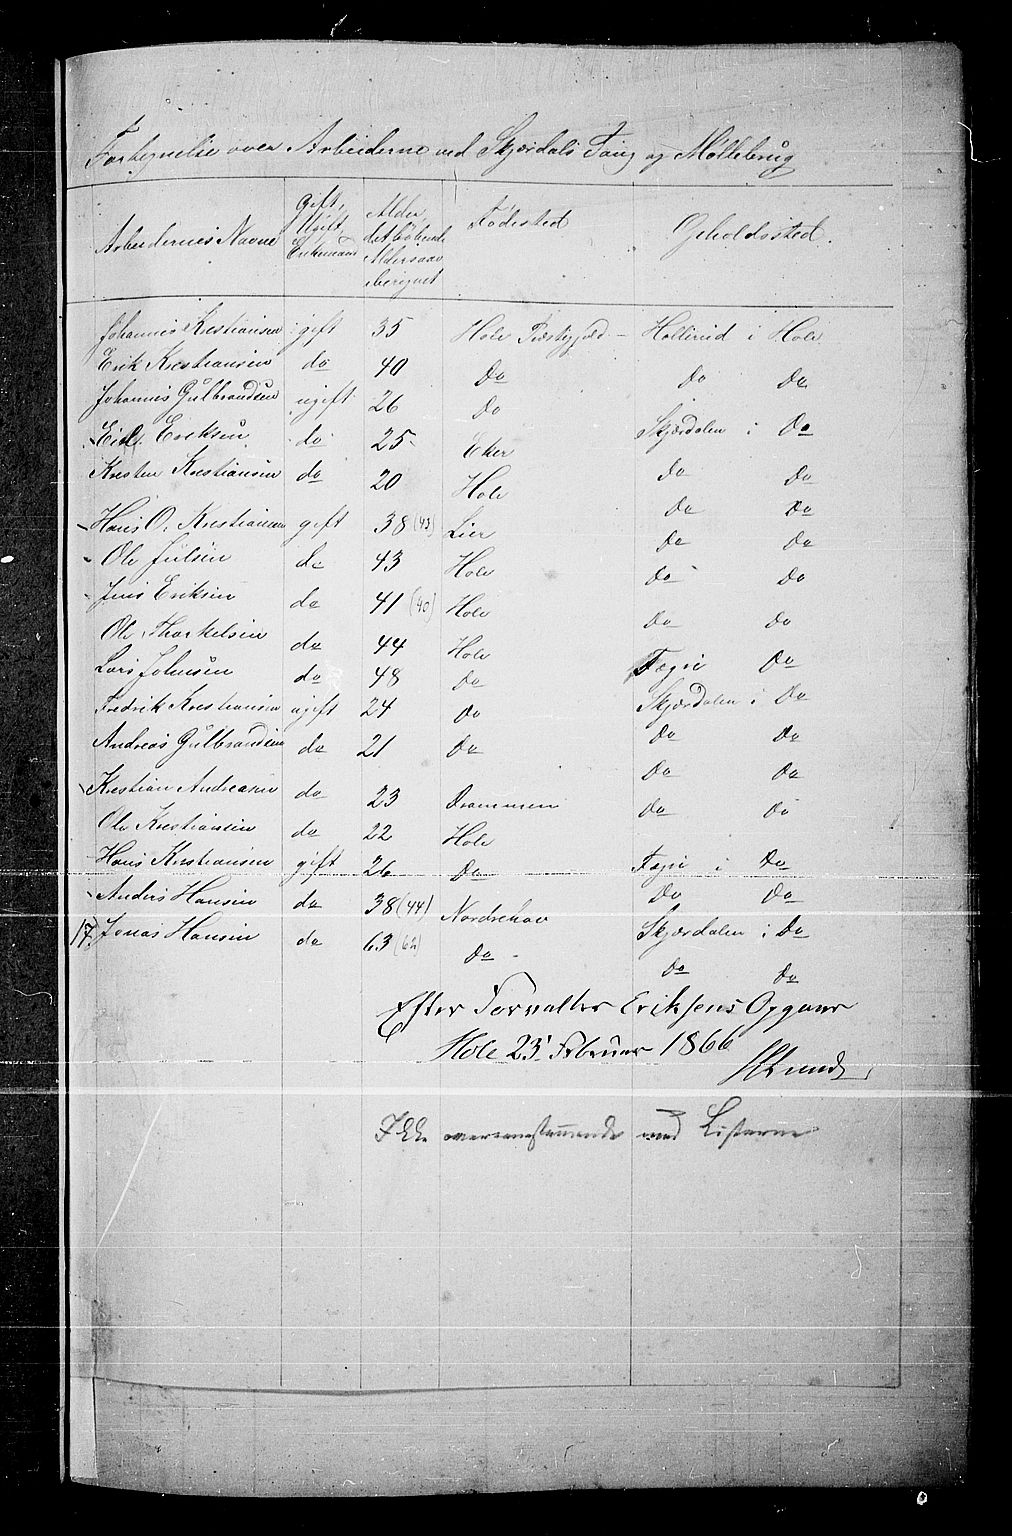 Fortegnelse over Arbeiderne ved Skjærdals Saug og Møllebrug
Arbeidernes Navne
Gift, Ugift, Enkemand
Alder, det løbende Aldersaar beregnet
Fødested
Opholdssted.
Johannes Kristiansen gift 35 Hole Præstegjeld - Hollerud i Hole
Erik Kristiansen do 40 Do Do Do
Johannes Gulbrandsen ugift 26 Do Skjærdalen i Do
Erik Eriksen do 25 Eker Do Do
Kristen Kristiansen do 20 Hole Do Do
Hans O. Kristiansen gift 38 (43) Lier Do Do
Ole Julsen do 43 Hole Do Do
Jens Eriksen do 41 (40) Hole Do Do
Ole Thorkelsen do 44 Hole Do
Lars Johnsen do 48 Do Skjærdalen i Do
Fredrik Kristiansen ugift 24 Do Do Do
Andreas Gulbrandsen do 21 Do Do Do
Kristian Andreasen do 23 Drammen Do Do
Ole Kristiansen do 22 Hole i Do
Hans Kristiansen gift 26 Do Do Do
Anders Hansen do 38 (44) Norderhov Skjærdalen i Do
17, Jonas Hansen do 63 (62) Do Do Do
Efter Forvalter Eriksens Opgave
Hole 23' Februar 1866
Lund
Ikke overensstemmende med Listerne